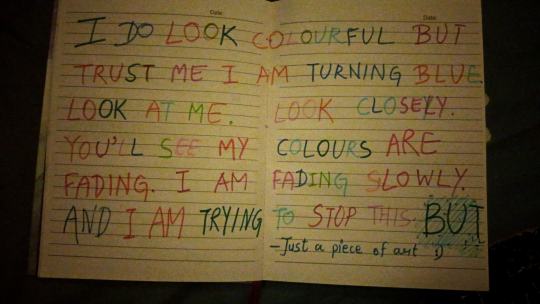 Date: Date:
I DO LOOK COLOURFUL BUT
TRUST ME I AM TURNING BLUE
LOOK AT ME. LOOK CLOSELY.
YOU'LL SEE MY COLOURS ARE
FADING. I AM FADING SLOWLY.
AND I AM TRYING TO STOP THIS. BUT
-Just a piece of art :)